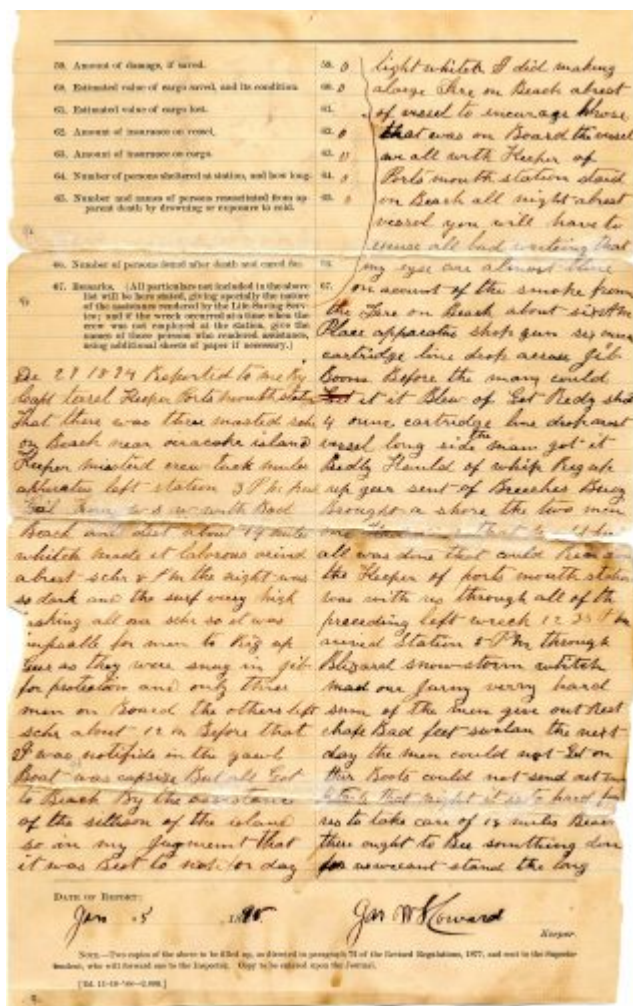 59. Amount of damage, if saved.
60. Estimated value of cargo saved, and its condition.
61. Estimated value of cargo lost.
62. Amount of insurance on vessel.
63. Amount of insurance on cargo.
64. Number of persons sheltered at station, and how long.
65. Number and names of persons resuscitated from apparent death by drowning or exposure to cold.
66. Number of persons found after death and cared for.
67. Remarks. (All particulars not included in the above
list will be here stated, giving specially the nature
of the assistance rendered by the Life-Saving Service;
and if the wreck occurred at a time when the
crew was not employed at the station, give the
names of those persons who rendered assistance,
using additional sheets of paper if necessary.)
De 28 1894 Reported to me By
Capt Keeper Ports mouth
That there was three masted schr
on Beach near ocracoke island
Keeper musted crew tuck
apparatus left station 3 Pm
w s w with Bad
Beach and dist about 14 miles
whitch made it laborous arivd
abrest schr 8 Pm the night was
so dark and the surf verry high
raking all over schr so it was
impossible for men to Rig up
Gear as they were snug in jib
for protection and only three
men on Board the others left
schr about 12 m Before that
I was notifide in the yawl
Boat was capsize But all Got
to Beach By the assistance
of the of the island
so in my Jugment that
it was Best to for day
59. 0
60. 0
61.
62. 0
63. 0
64. 0
65. 0
66.
67.
light whitch I did making
a large Fire on Beach abrest
of vessel to encurage those
that was on Board the vessel
we all with Keeper of
Ports mouth station staid
on Beach all night abrest
vessel you will have to
excuse all bad writing that
my eyes are almost
on acount of the smoke from
the Fire on Beach about six Am
Place apparatus shop gun six ounc
cartridge line drop across jib
Boom Before the man could
it it Blew of Got Redy
4 ounce cartridge line drop
vessel long side the man got it
Redly of whip Rig up
up gear sent of Breeches Buoy
Brought a shore the two men
all was done that could
the Keeper of ports mouth station
was with us through all of the
preceding left wreck 12 35 Pm
arived Station 5 Pm through
Blizard snow-storm whitch
mad our jurny verry hard
sum of the men give out Rest
chafe Bad feet swolen the next
day the men could not Get on
thir Boots could not send out
that night it is to hard for
us to take care of 18 miles Beach
there ought to Bee somthing don
for stand the long
DATE OF REPORT:
Jan 5, 1895
Jas W Howard
Keeper.
NOTE.—Two copies of the above to be filled up, as directed in paragraph 73 of the Revised Regulations, 1877, and sent to the Superintendent,
who will forward one to the Inspector. Copy to be entered upon the Journal.